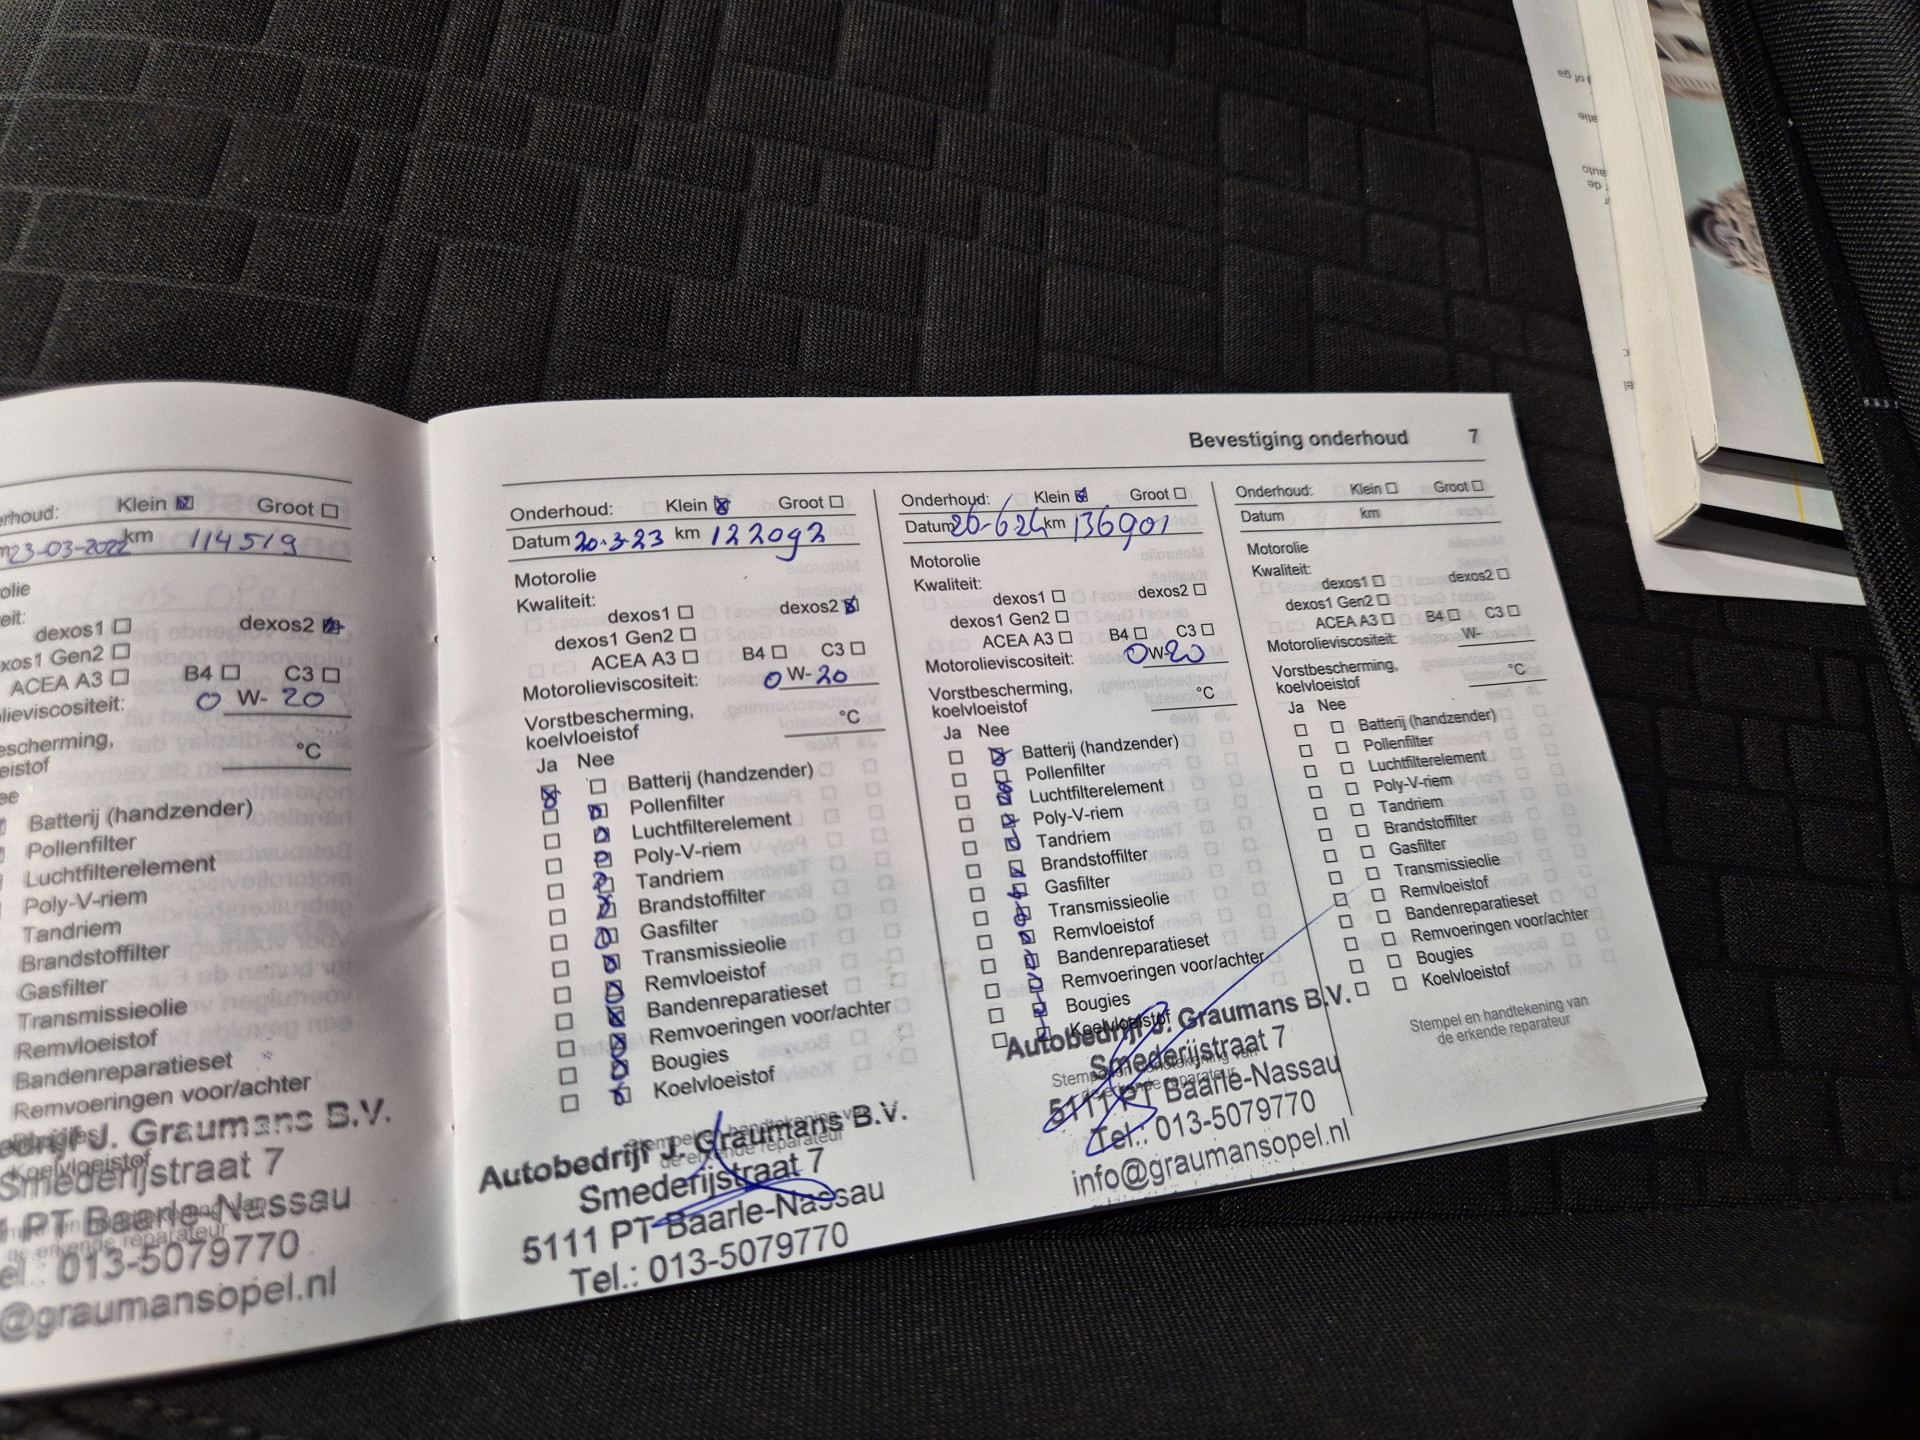 Bevestiging onderhoud 7
Klein Groot
23-03-2022 km 114519
dexos1 dexos2
ACEA A3 B4 C3
0 W- 20
°C
Batterij (handzender)
Pollenfilter
Luchtfilterelement
Poly-V-riem
Tandriem
Brandstoffilter
Gasfilter
Transmissieolie
Remvloeistof
Bandenreparatieset
Remvoeringen voor/achter
Koelvloeistof
J. Graumans B.V.
Smederijstraat 7
PT Baarle-Nassau
013-5079770
@graumansopel.nl
Onderhoud: Klein Groot
Datum 20-3-23 km 122092
Motorolie
Kwaliteit:
dexos1 dexos2
dexos1 Gen2
ACEA A3 B4 C3
Motorolieviscositeit: 0 W- 20
Vorstbescherming,
koelvloeistof °C
Ja Nee
Batterij (handzender)
Pollenfilter
Luchtfilterelement
Poly-V-riem
Tandriem
Brandstoffilter
Gasfilter
Transmissieolie
Remvloeistof
Bandenreparatieset
Remvoeringen voor/achter
Bougies
Koelvloeistof
Stempel en handtekening van
de erkende reparateur
Autobedrijf J. Graumans B.V.
Smederijstraat 7
5111 PT Baarle-Nassau
Tel.: 013-5079770
Onderhoud: Klein Groot
Datum 26-6-24 km 136901
Motorolie
Kwaliteit:
dexos1 dexos2
dexos1 Gen2
ACEA A3 B4 C3
Motorolieviscositeit: 0 W- 20
Vorstbescherming,
koelvloeistof °C
Ja Nee
Batterij (handzender)
Pollenfilter
Luchtfilterelement
Poly-V-riem
Tandriem
Brandstoffilter
Gasfilter
Transmissieolie
Remvloeistof
Bandenreparatieset
Remvoeringen voor/achter
Bougies
Koelvloeistof
Stempel en handtekening van
de erkende reparateur
Autobedrijf J. Graumans B.V.
Smederijstraat 7
5111 PT Baarle-Nassau
Tel.: 013-5079770
info@graumansopel.nl
Onderhoud: Klein Groot
Datum km
Motorolie
Kwaliteit:
dexos1 dexos2
dexos1 Gen2
ACEA A3 B4 C3
Motorolieviscositeit: W-
Vorstbescherming,
koelvloeistof °C
Ja Nee
Batterij (handzender)
Pollenfilter
Luchtfilterelement
Poly-V-riem
Tandriem
Brandstoffilter
Gasfilter
Transmissieolie
Remvloeistof
Bandenreparatieset
Remvoeringen voor/achter
Bougies
Koelvloeistof
Stempel en handtekening van
de erkende reparateur